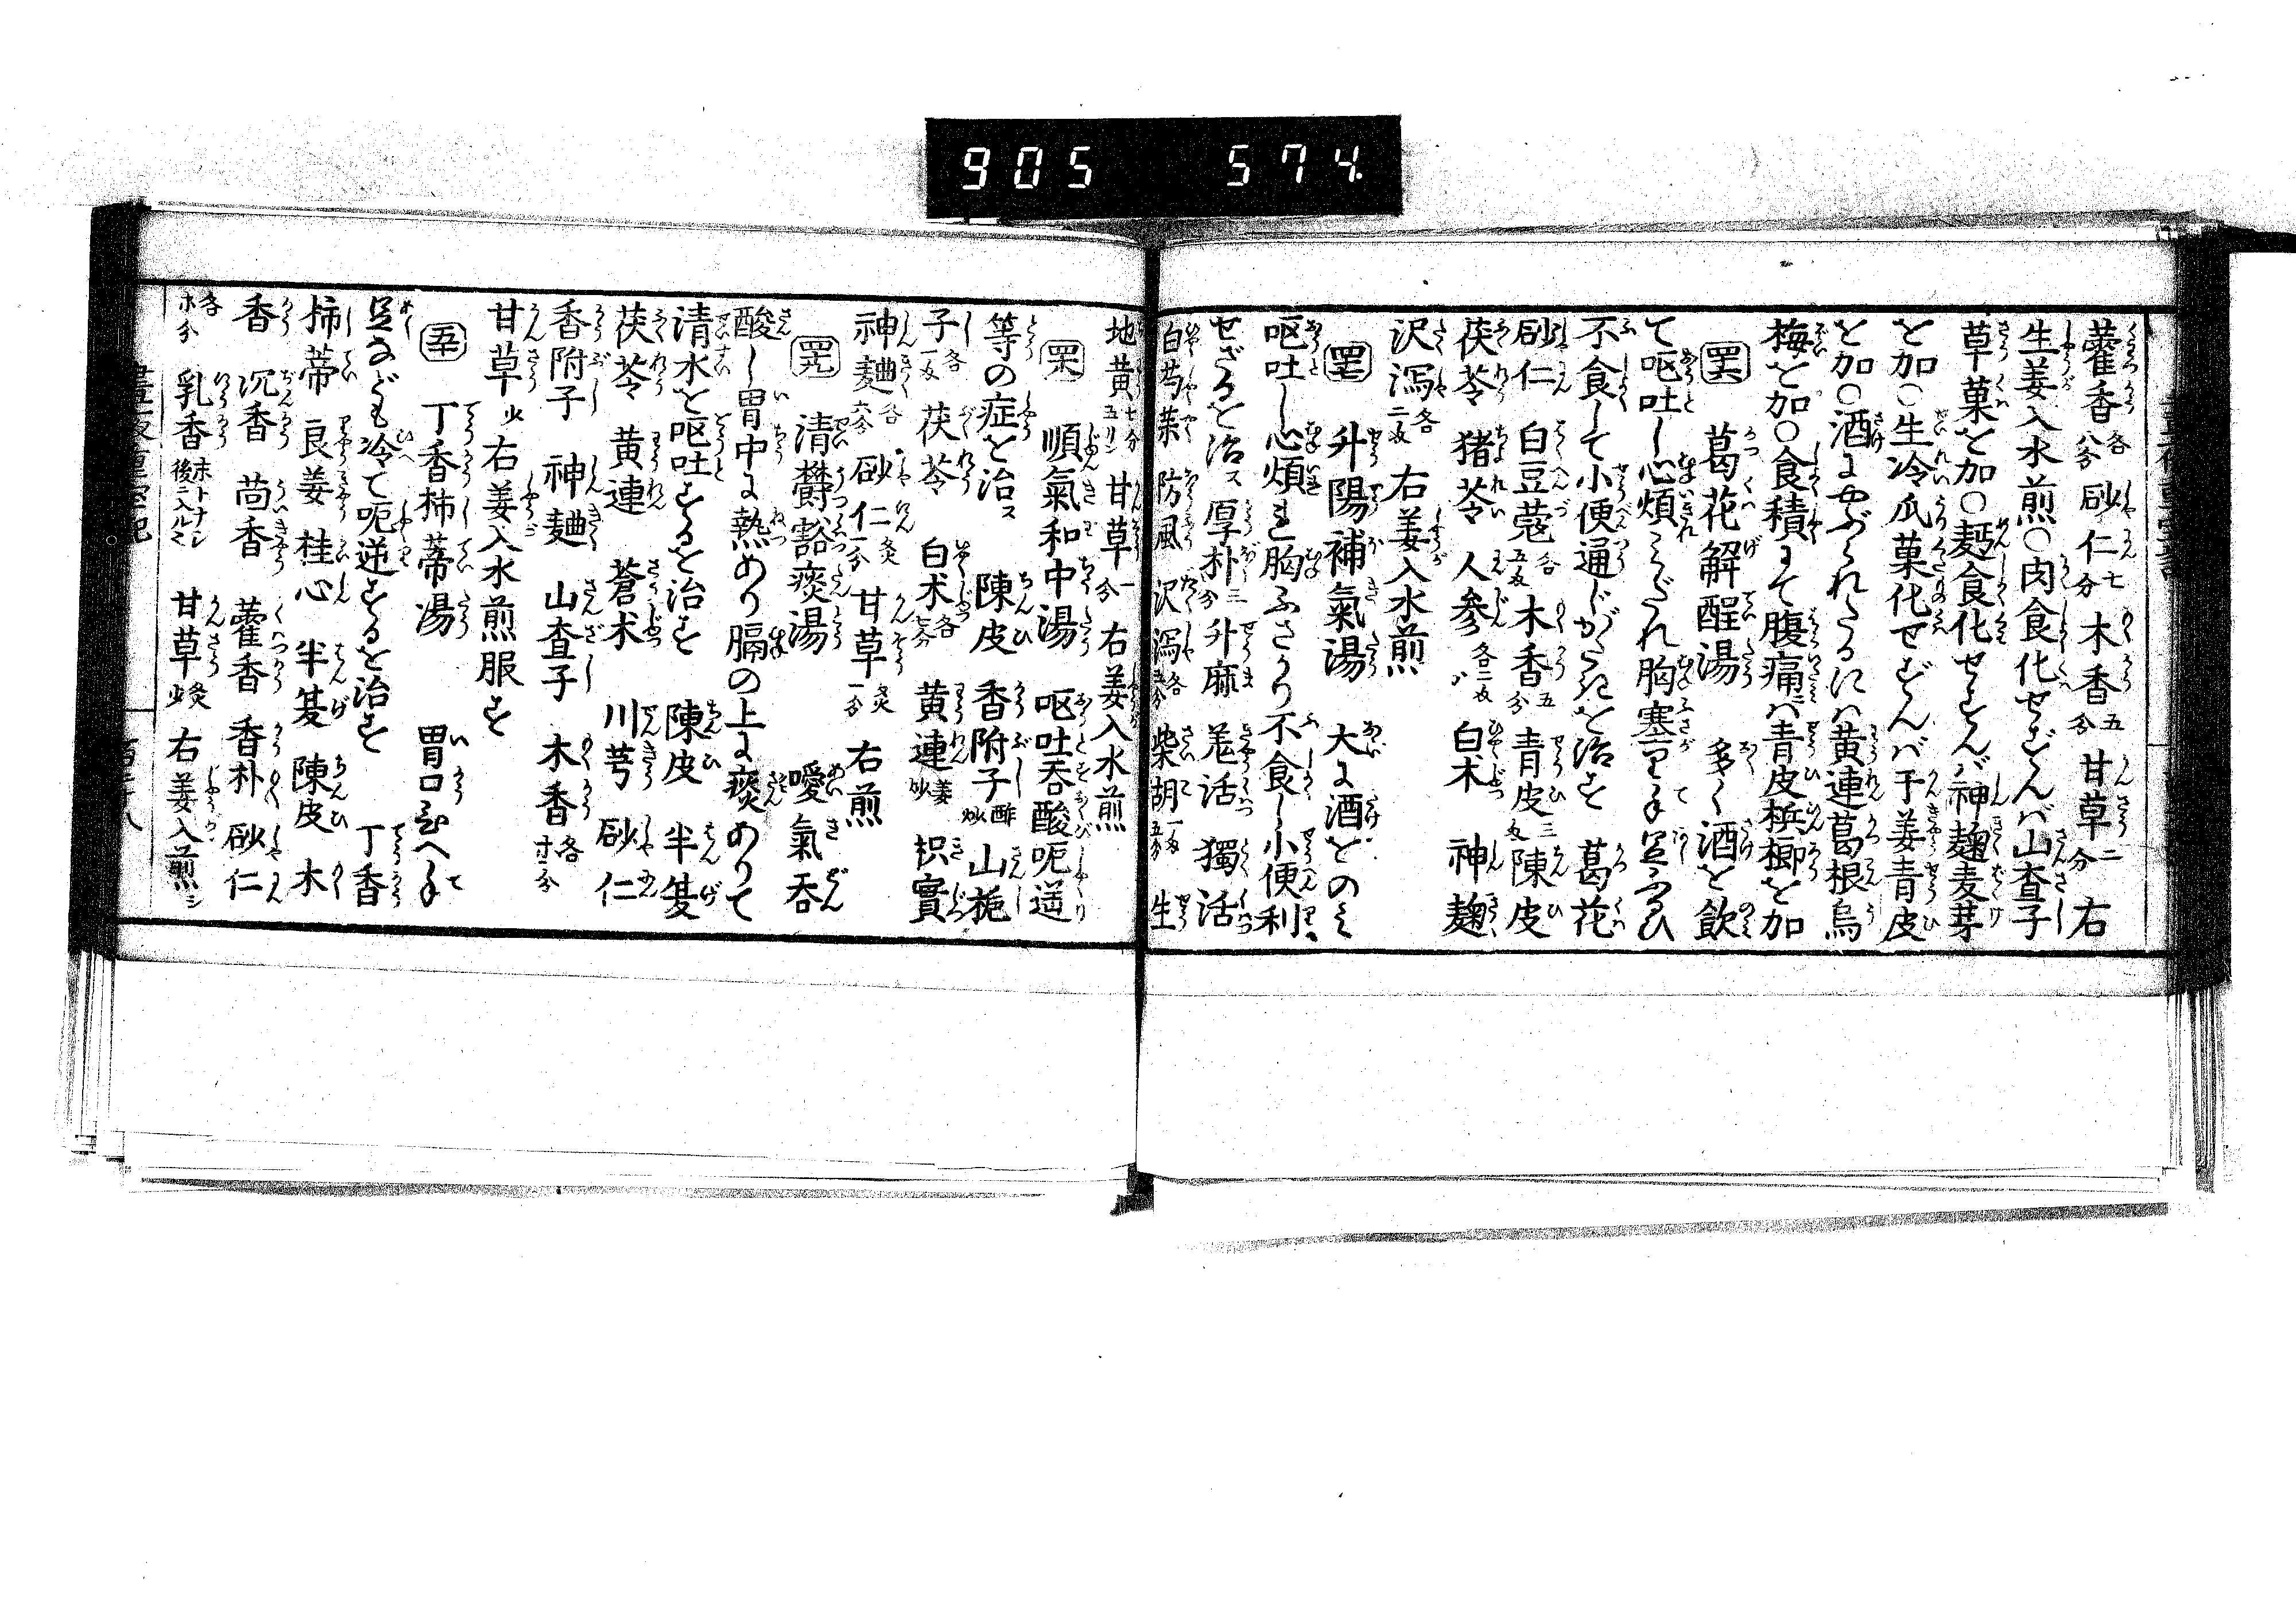 905 574
藿香各八分 砂仁七分 木香五分 甘草二分 右
生姜入水煎○肉食化せずんバ山査子
草菓を加○麪食化せずんバ神麹麦芽
を加○生冷瓜菓化せずんバ干姜青皮
を加○酒にやぶられたるにハ黄連葛根烏
梅を加○食積にて腹痛にハ青皮梹榔を加
四十六 葛花解醒湯 多く酒を飲
て呕吐し心煩みだれ胸塞り手足ふるひ
不食して小便通じがたきを治す 葛花
砂仁 白豆蔻各五匁 木香五分 青皮三匁 陳皮
茯苓 猪苓 人参各二匁 白术 神麹
沢瀉各二匁 右姜入水煎
四十七 升陽補氣湯 大に酒をのミ
呕吐し心煩れ胸ふさがり不食し小便利
せざるを治ス 厚朴三分 升麻 羌活 獨活
白芍薬 防風 沢瀉各 柴胡 生
地黄七分五リン 甘草一分 右姜入水煎
四十八 順氣和中湯 呕吐呑酸呃逆
等の症を治ス 陳皮 香附子醋炒 山梔
子各一匁 茯苓 白术各七分 黄連姜炒 枳實
神麯各六分 砂仁炙一分 甘草炙一分 右煎
四十九 清欝豁痰湯 噯氣呑
酸し胃中に熱あり膈の上に痰ありて
清水を呕吐するを治す 陳皮 半夏
茯苓 黄連 蒼术 川芎 砂仁
香附子 神麯 山査子 木香各
甘草少 右姜入水煎服す
五十 丁香柿蒂湯 胃口ひへ手
足なども冷て呃逆するを治す 丁香
柿蒂 良姜 桂心 半夏 陳皮 木
香 沉香 茴香 藿香 香朴 砂仁
各 乳香 甘草炙少 右姜入煎シ